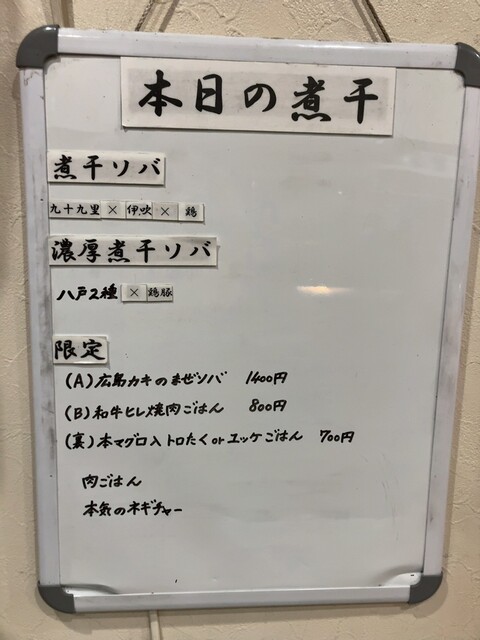 本日の煮干
煮干ソバ
九十九里×伊吹×鶏
濃厚煮干ソバ
八戸2種×鶏豚
限定
(A)広島カキのまぜソバ 1400円
(B)和牛ヒレ焼肉ごはん 800円
(裏)本マグロ入トロたくorユッケごはん 700円
肉ごはん
本気のネギチャー